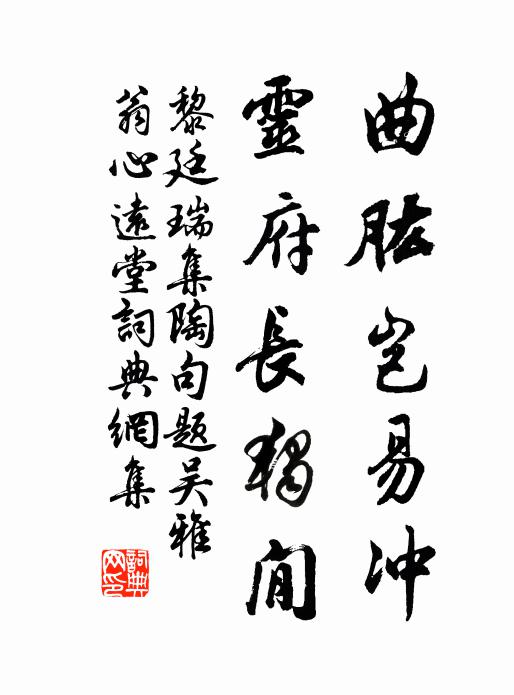 曲肱豈易冲
靈府長獨閒
黎廷瑞集陶句題吴雅
翁心遠堂詞典網集
詞典网印